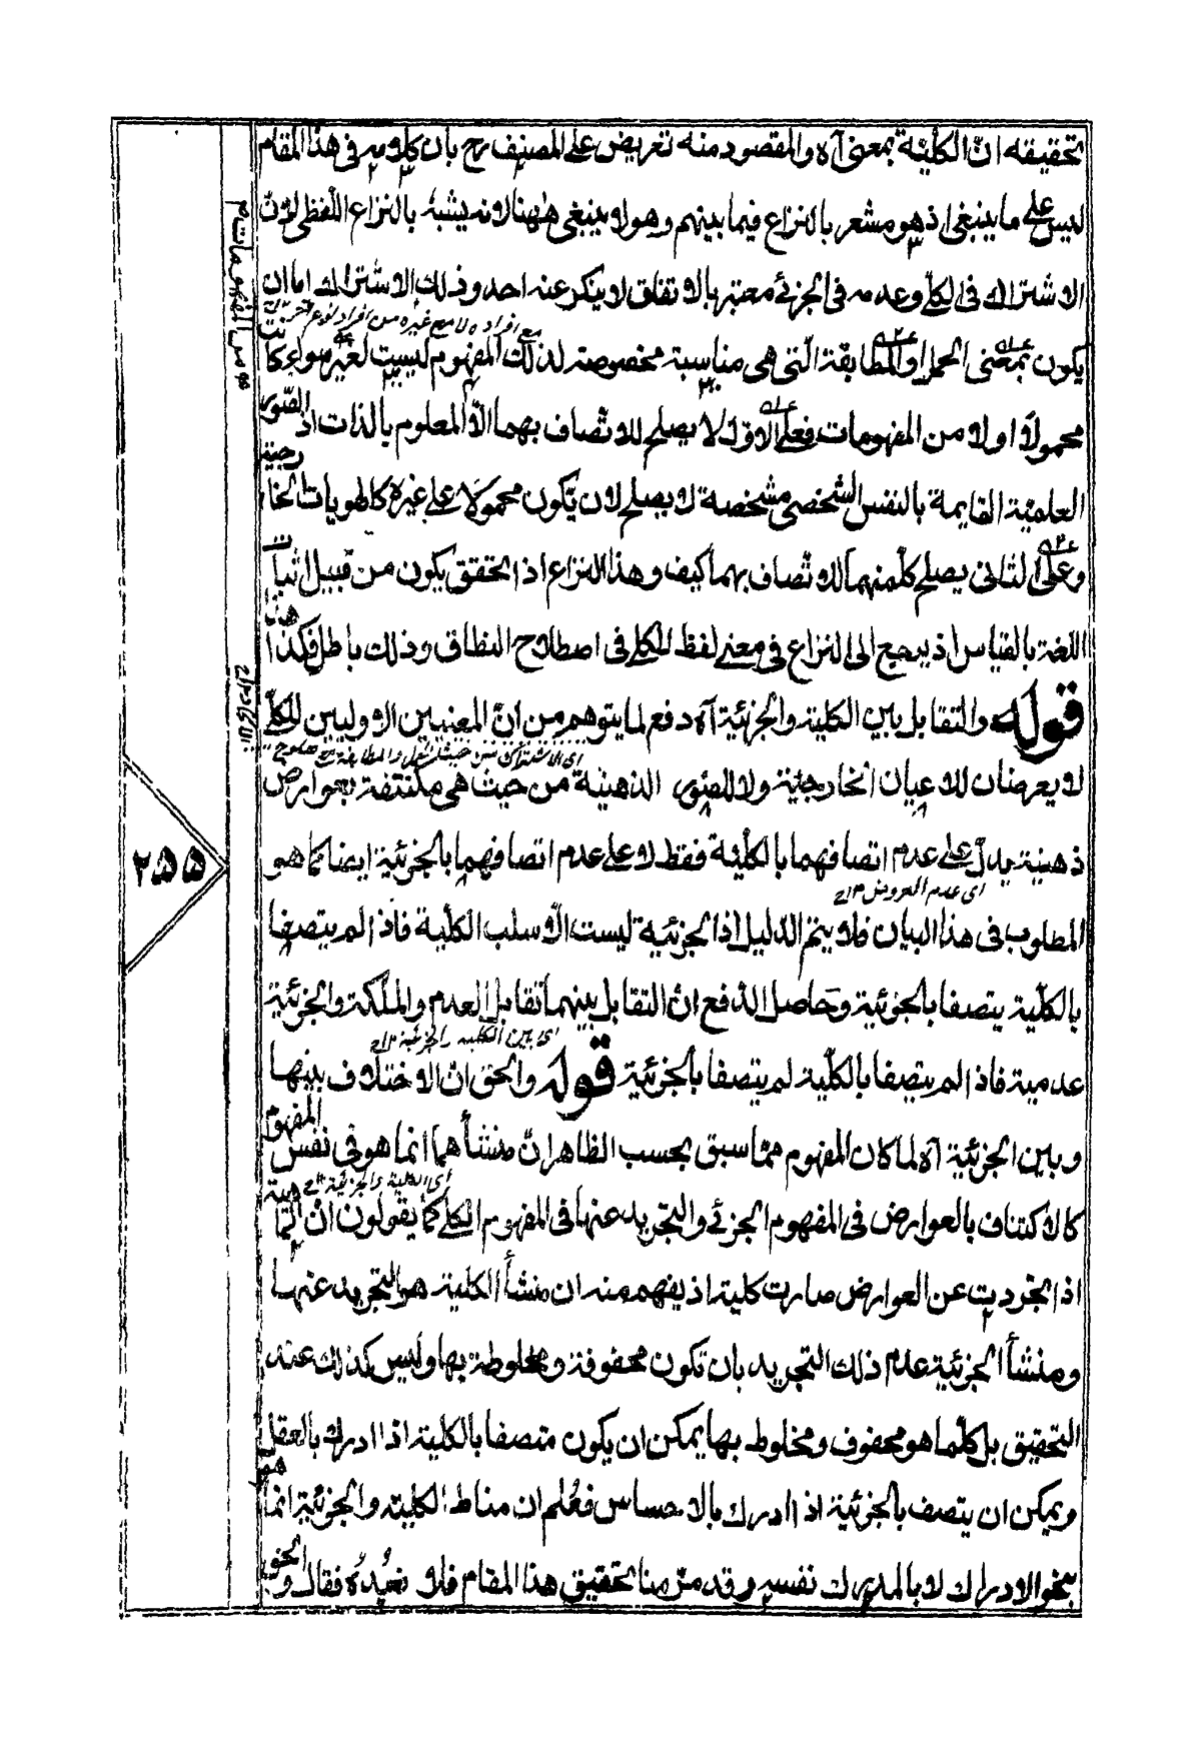 تحقيقه ان الكلية بمعنى آه والمقصود منه تعريض على المصنف رح بان كلامه في هذا المقام
ليس على ما ينبغي اذ هو مشعر بالنزاع فيما بينهم وهو لا ينبغي ههنا لانه يشبه بالنزاع اللفظي لان
الاشتراك في الكلي وعدمه في الجزئي معتبر بالاتفاق لا ينكر عنه احد وذلك الاشتراك اما ان
مع افراده لا مع غيره من افراد نوع آخر
يكون بمعنى الحمل او المطابقة التي هي مناسبة مخصوصة لذلك المفهوم ليست لغيره سواء كانت
محمولا او لا من المفهومات فعلى الاول لا يصلح للاتصاف بهما الا المعلوم بالذات اذ الصور
العلمية القايمة بالنفس الشخصي مشخصة لا يصلح لان يكون محمولا على غيره كالهويات الخارجية
وعلى الثاني يصلح كل منهما للاتصاف بهما كيف وهذا النزاع اذا تحقق يكون من قبيل اثبات
اللغة بالقياس اذ يرجع الى النزاع في معنى لفظ الكلي في اصطلاح النطاق وذلك باطل فكذا هذا
قوله والتقابل بين الكلية والجزئية آه دفع لما يتوهم من ان المعنيين الاوليين للكلي
اي الاشتراك من حيث الحمل والمطابقة
لا يعرضان للاعيان الخارجية ولا للصور الذهنية من حيث هي مكتنفة بعوارض
ذهنية يدل على عدم اتصافهما بالكلية فقط لا على عدم اتصافهما بالجزئية ايضا كما هو
اي عدم العروض ١٢
المطلوب في هذا البيان فلا يتم الدليل اذ الجزئية ليست الا سلب الكلية فاذا لم يتصفا
بالكلية يتصفا بالجزئية وحاصل الدفع ان التقابل بينهما تقابل العدم والملكة والجزئية
اي بين الكلية والجزئية ١٢
عدمية فاذا لم يتصفا بالكلية لم يتصفا بالجزئية قوله والحق ان الاختلاف بينها
وبين الجزئية آه لما كان المفهوم مما سبق بحسب الظاهر ان منشأهما انما هو في نفس المفهوم
اي الكلية والجزئية ١٢
كالاكتناف بالعوارض في المفهوم الجزئي والتجريد عنها في المفهوم الكلي كما يقولون ان الماهية
اذا تجردت عن العوارض صارت كلية اذ يفهم منه ان منشأ الكلية هو التجريد عنها
ومنشأ الجزئية عدم ذلك التجريد بان تكون محفوفة ومخلوطة بها وليس كذلك عند
التحقيق بل كلما هو محفوف ومخلوط بها يمكن ان يكون متصفا بالكلية اذا ادرك بالعقل
ويمكن ان يتصف بالجزئية اذا ادرك بالاحساس فعلم ان مناط الكلية والجزئية انما هو
بنحو الادراك لا بالمدرك نفسه وقد مر منا تحقيق هذا المقام فلا نعيده فقال والحق
من المفهومات ١٢
٢٥٥